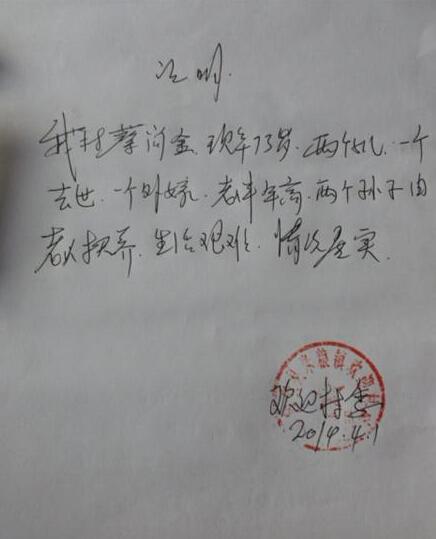 证明
我村蔡河金,现年73岁,两个儿,一个
去世,一个外嫁,老年年高,两个孙子由
老人扶养,生活艰难,情况属实.
欢迎村委
2014.4.1